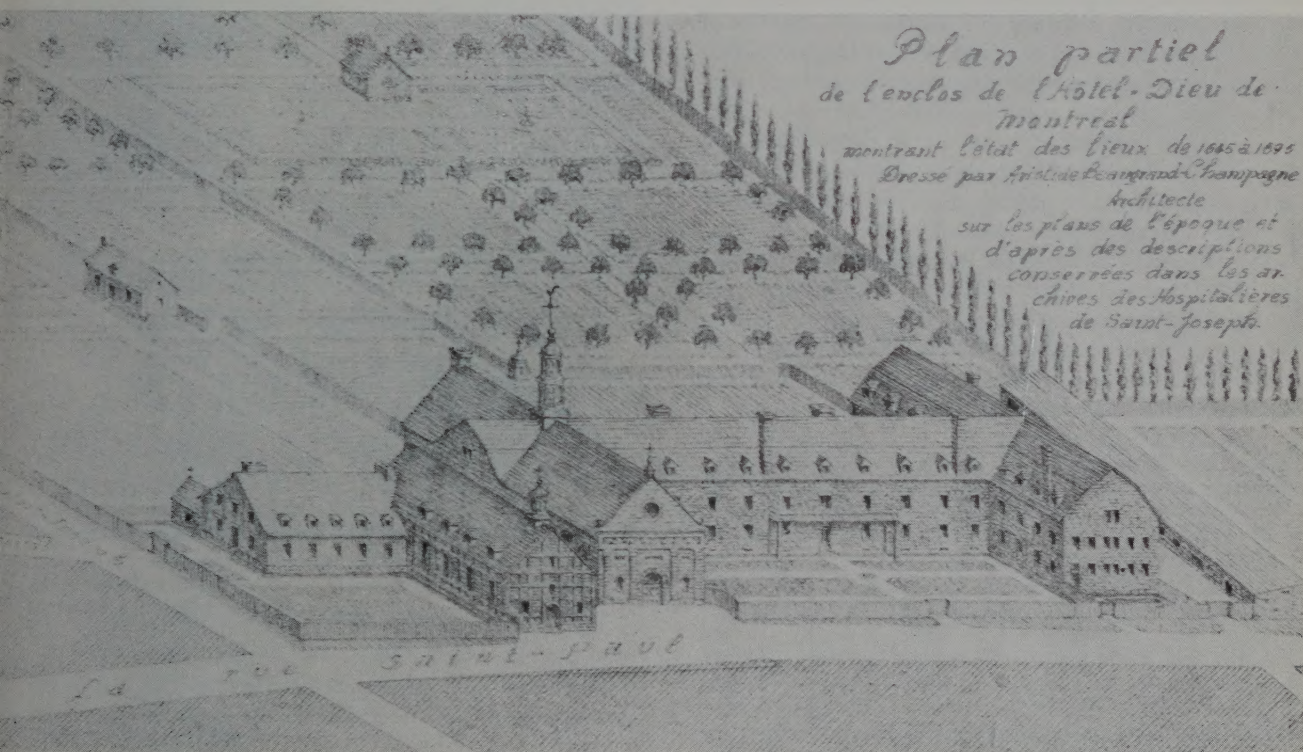 Plan partiel
de l'enclos de l'Hôtel-Dieu de
Montreal
montrant l'état des lieux de 1645 à 1695
Dressé par Aristide Beaugrand-Champagne
Architecte
sur les plans de l'époque et
d'après des descriptions
conservées dans les ar-
chives des Hospitalières
de Saint-Joseph.
la rue Saint-Paul